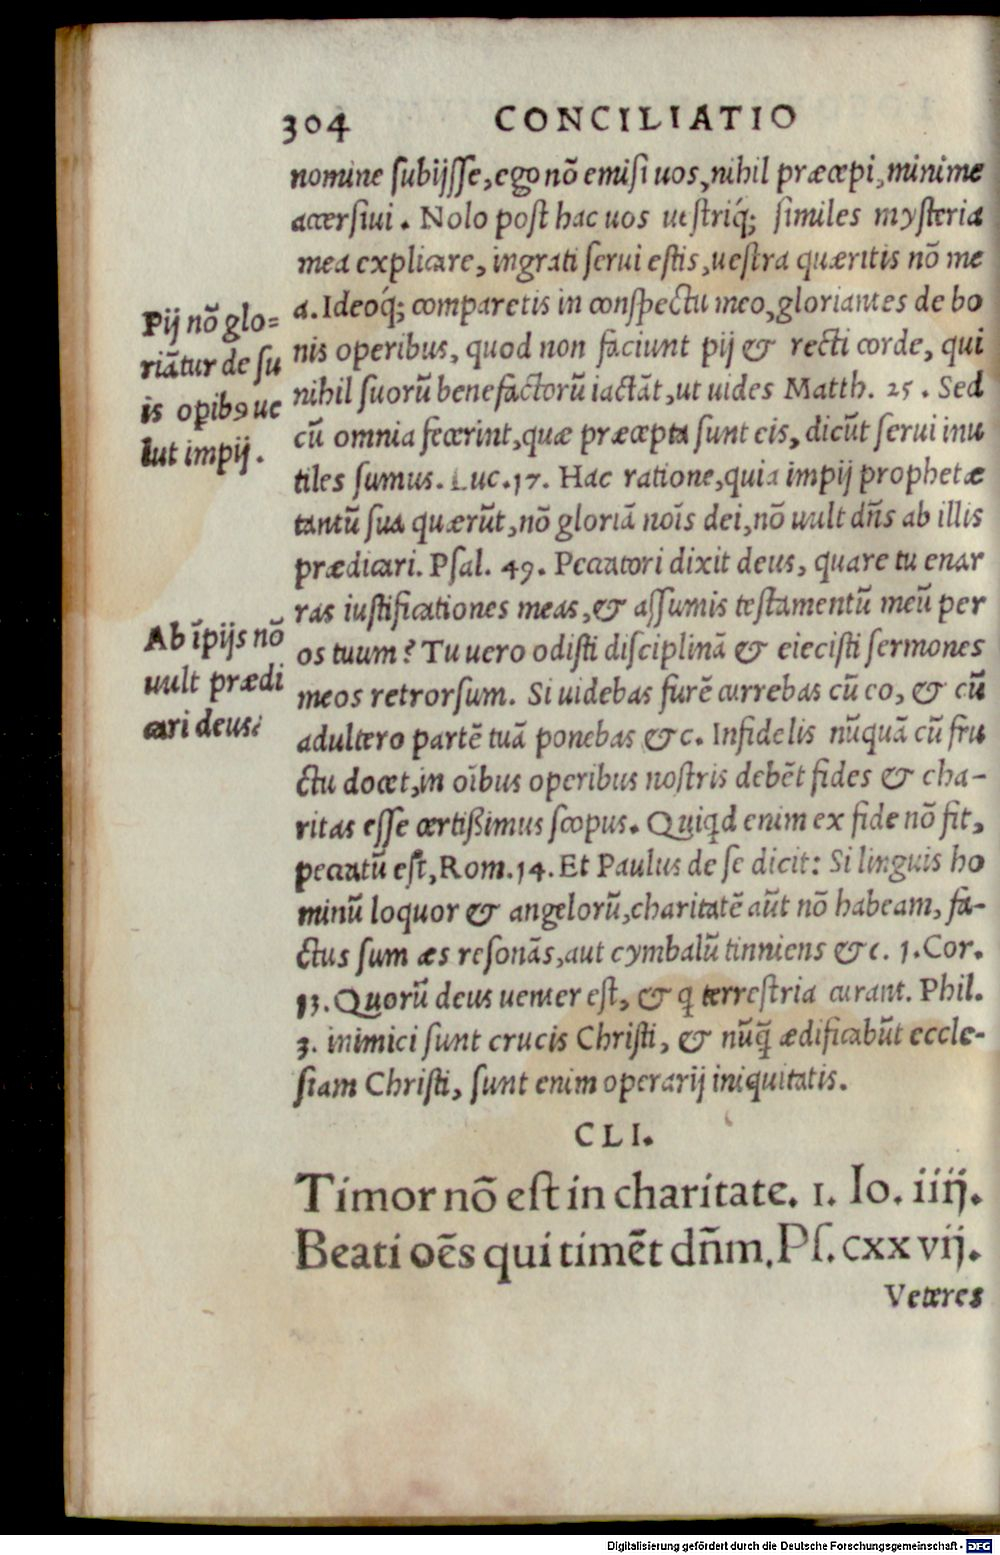 304 CONCILIATIO
nomine subijsse, ego nō emisi uos, nihil præcepi, minime
accersiui. Nolo post hac uos uestriq́; similes mysteria
mea explicare, ingrati serui estis, uestra quæritis nō me
a. Ideoq́; comparetis in conspectu meo, gloriantes de bo
nis operibus, quod non faciunt pij & recti corde, qui
nihil suorū benefactorū iactāt, ut uides Matth. 25. Sed
cū omnia fecerint, quæ præcepta sunt eis, dicūt serui inu
tiles sumus. Luc. 17. Hac ratione, quia impij prophetæ
tantū sua quærūt, nō gloriā noīs dei, nō uult dn̄s ab illis
prædicari. Psal. 49. Peccatori dixit deus, quare tu enar
ras iustificationes meas, & assumis testamentū meū per
os tuum? Tu uero odisti disciplinā & eiecisti sermones
meos retrorsum. Si uidebas furē currebas cū eo, & cū
adultero partē tuā ponebas &c. Infidelis nūquā cū fru
ctu docet, in oībus operibus nostris debēt fides & cha-
ritas esse certißimus scopus. Quiqd enim ex fide nō fit,
peccatū est, Rom. 14. Et Paulus de se dicit: Si linguis ho
minū loquor & angelorū, charitatē aūt nō habeam, fa-
ctus sum æs resonās, aut cymbalū tinniens &c. 1. Cor.
13. Quorū deus uenter est, & q terrestria curant. Phil.
3. inimici sunt crucis Christi, & nūq̄ ædificabūt eccle-
siam Christi, sunt enim operarij iniquitatis.
Pij nō glo=
riātur de su
is opibꝰ ue
lut impij.
Ab īpijs nō
uult prædi
cari deus.
CLI.
Timor nō est in charitate. 1. Io. iiij.
Beati oēs qui timēt dn̄m. Ps. cxxvij.
Veteres
Digitalisierung gefördert durch die Deutsche Forschungsgemeinschaft - DFG